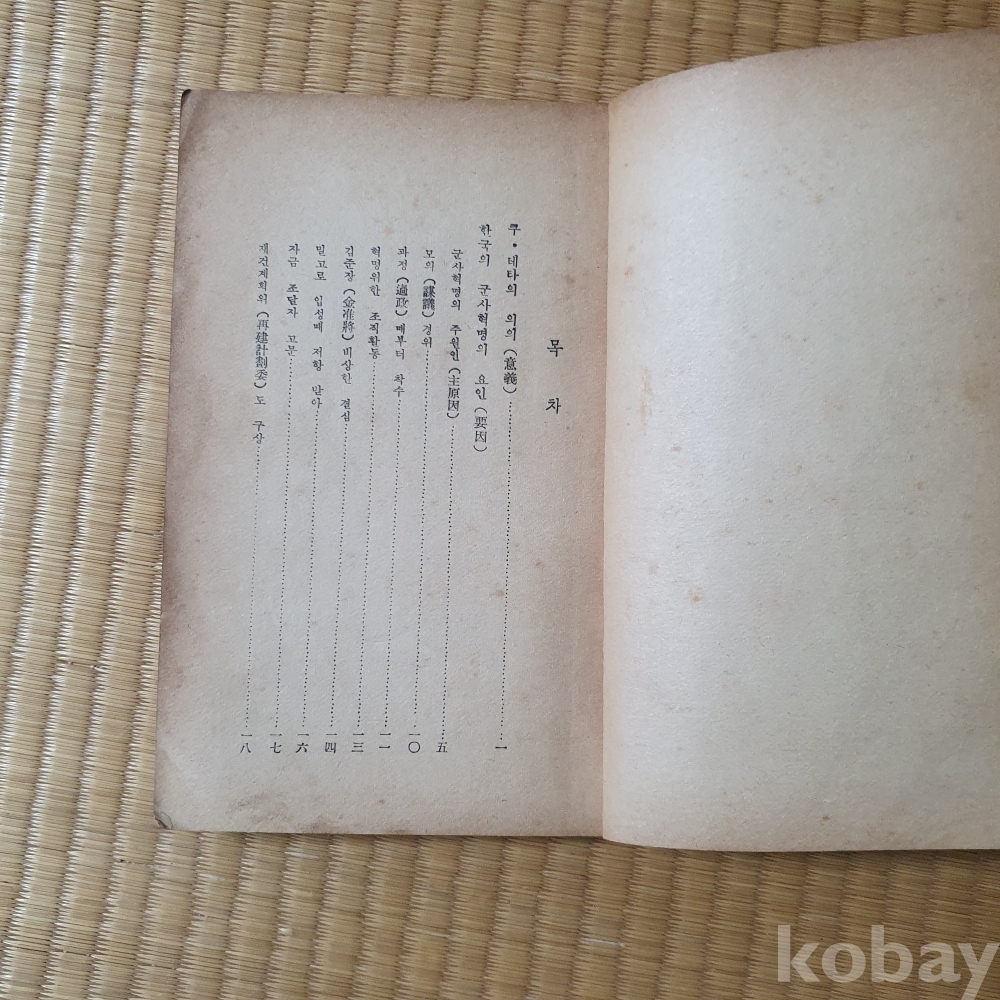 목 차
쿠·데타의 의의(意義)……一
한국의 군사혁명의 요인(要因)
군사혁명의 주원인(主原因)……五
모의(謀議) 경위……一〇
과정(過政)때부터 착수……一一
혁명위한 조직활동……一三
김준장(金准將) 비상한 결심……一四
밀고로 입성때 저항 받아……一六
자금 조달자 고문……一七
재건계획위(再建計劃委)도 구상……一八
kobay